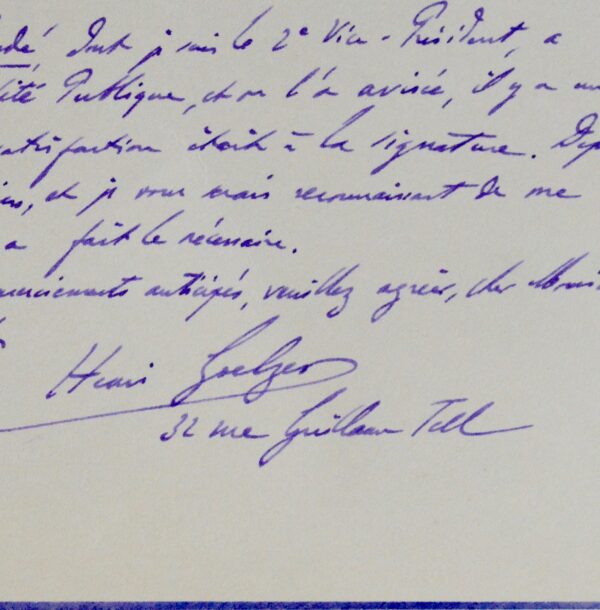 dé, dont je suis le 2e Vice-Président, a
lité Publique, et on l'a avisée, il y a un
satisfaction était à la signature. Dep
et je vous serais reconnaissant de me
a fait le nécessaire.
merciements anticipés, veuillez agréer, cher Monsi
Henri Goelzer
32 rue Guillaume Tell